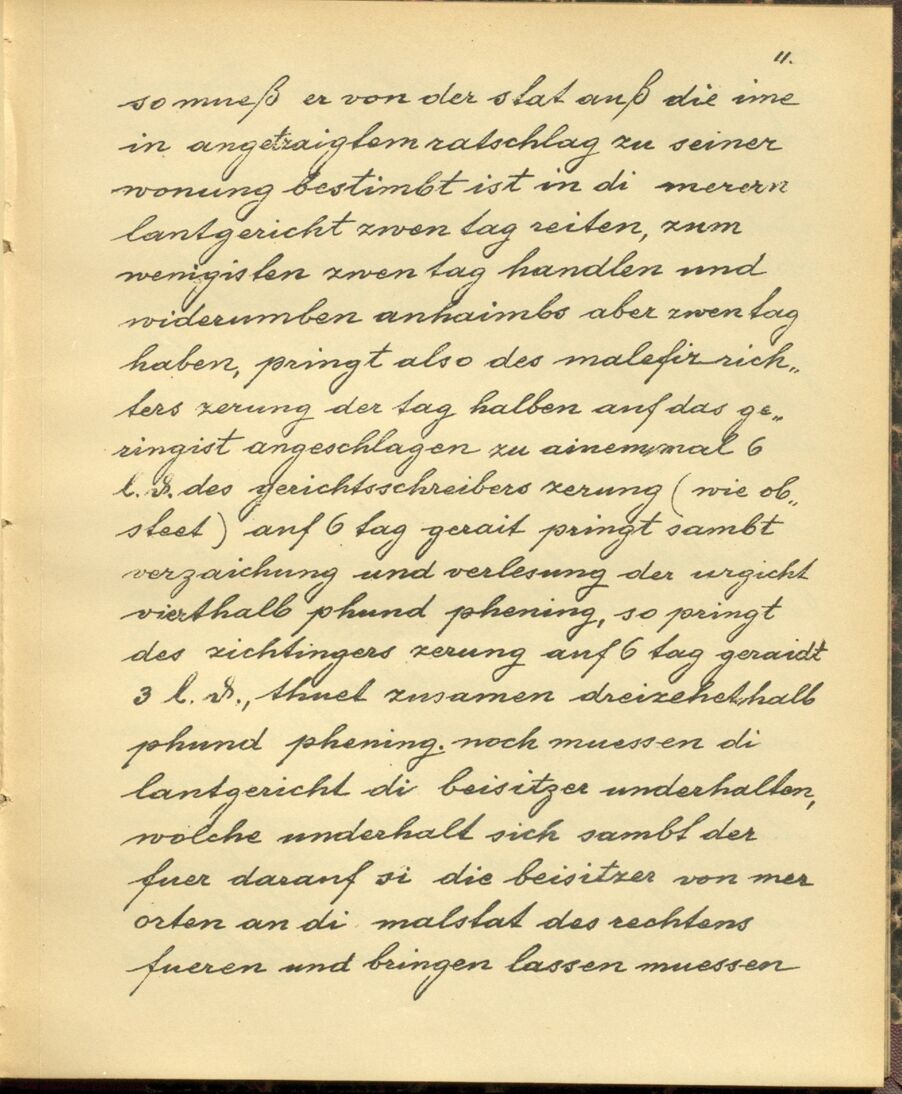 11.
so mueß er von der stat auß die ime
in angetzaigtem ratschlag zu seiner
wonung bestimbt ist in di merern
lantgericht zwen tag reiten, zum
wenigisten zwen tag handlen und
widerumben anhaimbs aber zwen tag
haben, pringt also des malefiz rich„
ters zerung der tag halben auf das ge„
ringist angeschlagen zu ainem mal 6
l. ₰. des gerichtsschreibers zerung (wie ob„
steet) auf 6 tag gerait pringt sambt
verzaichung und verlesung der urgicht
vierthalb phund phening, so pringt
des zichtingers zerung auf 6 tag geraidt
3 l. ₰., thuet zusamen dreizehethalb
phund phening. noch muessen di
lantgericht di beisitzer underhalten,
wolche underhalt sich sambt der
fuer darauf si die beisitzer von mer
orten an di malstat des rechtens
fueren und bringen lassen muessen